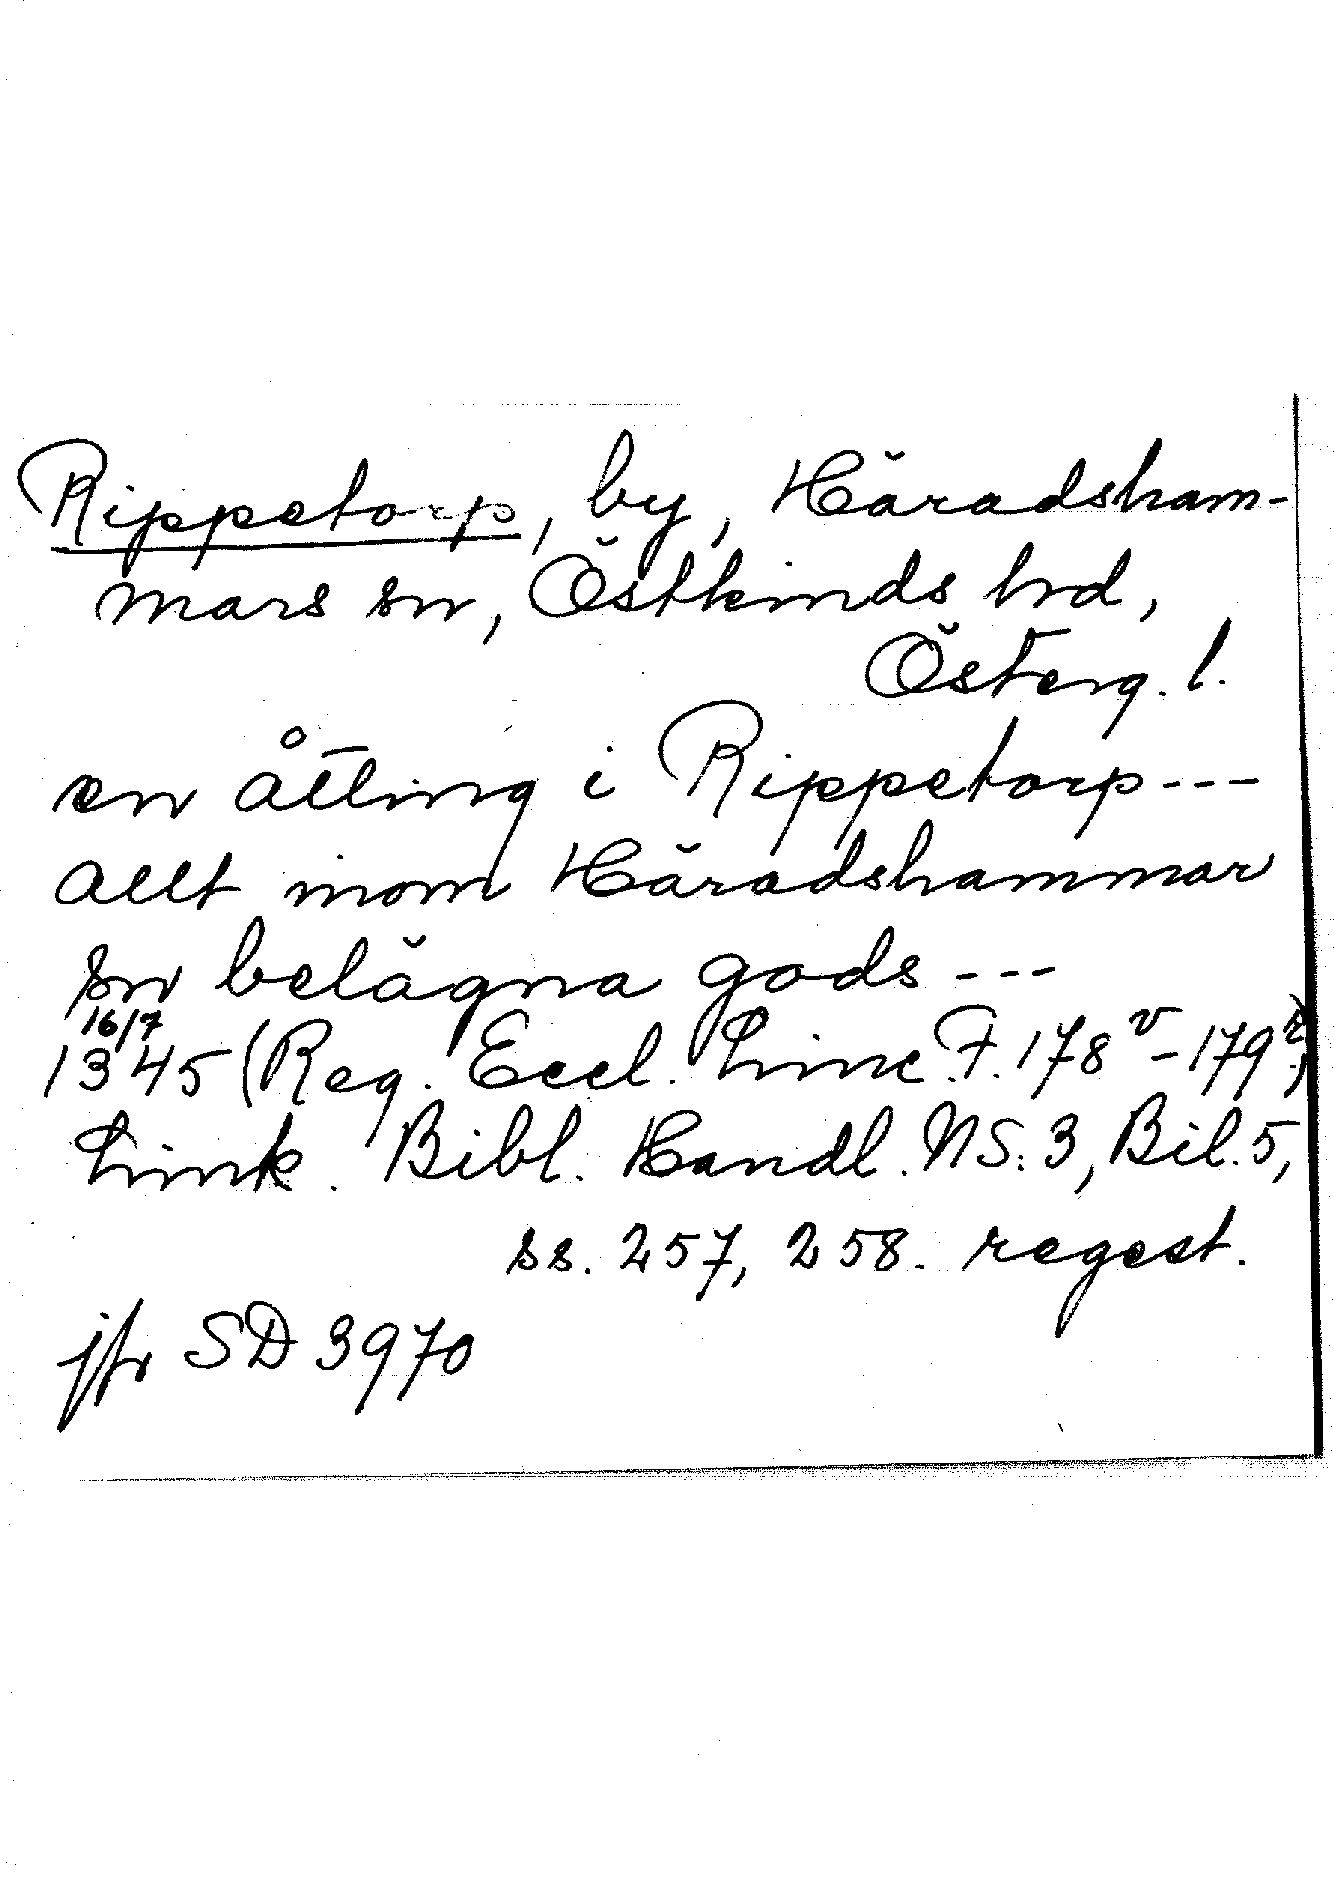 Rippetorp, by, Häradsham-
mars sn, Östkinds hrd,
Österg. l.
en åtting i Rippetorp---
allt inom Häradshammar
sn belägna gods---
16/7
1345 (Reg. Eccl. Linc. F. 178v-179r;
Link. Bibl. Handl. NS. 3, Bil. 5,
ss. 257, 258. regest.
jfr SD 3970